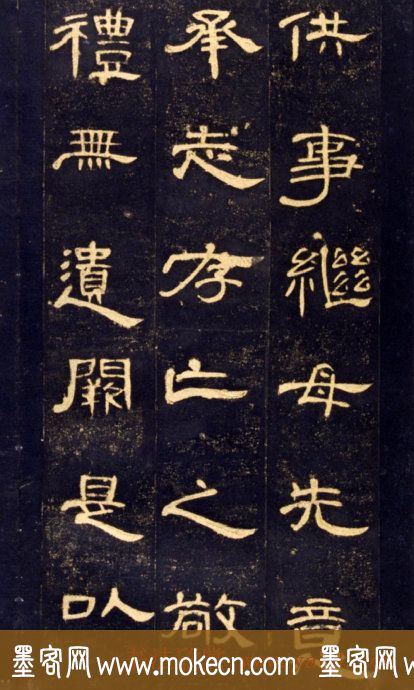 供事繼母先意
承志存亡之敬
禮無遺闕是以
墨客网 www.mokecn.com 墨客网